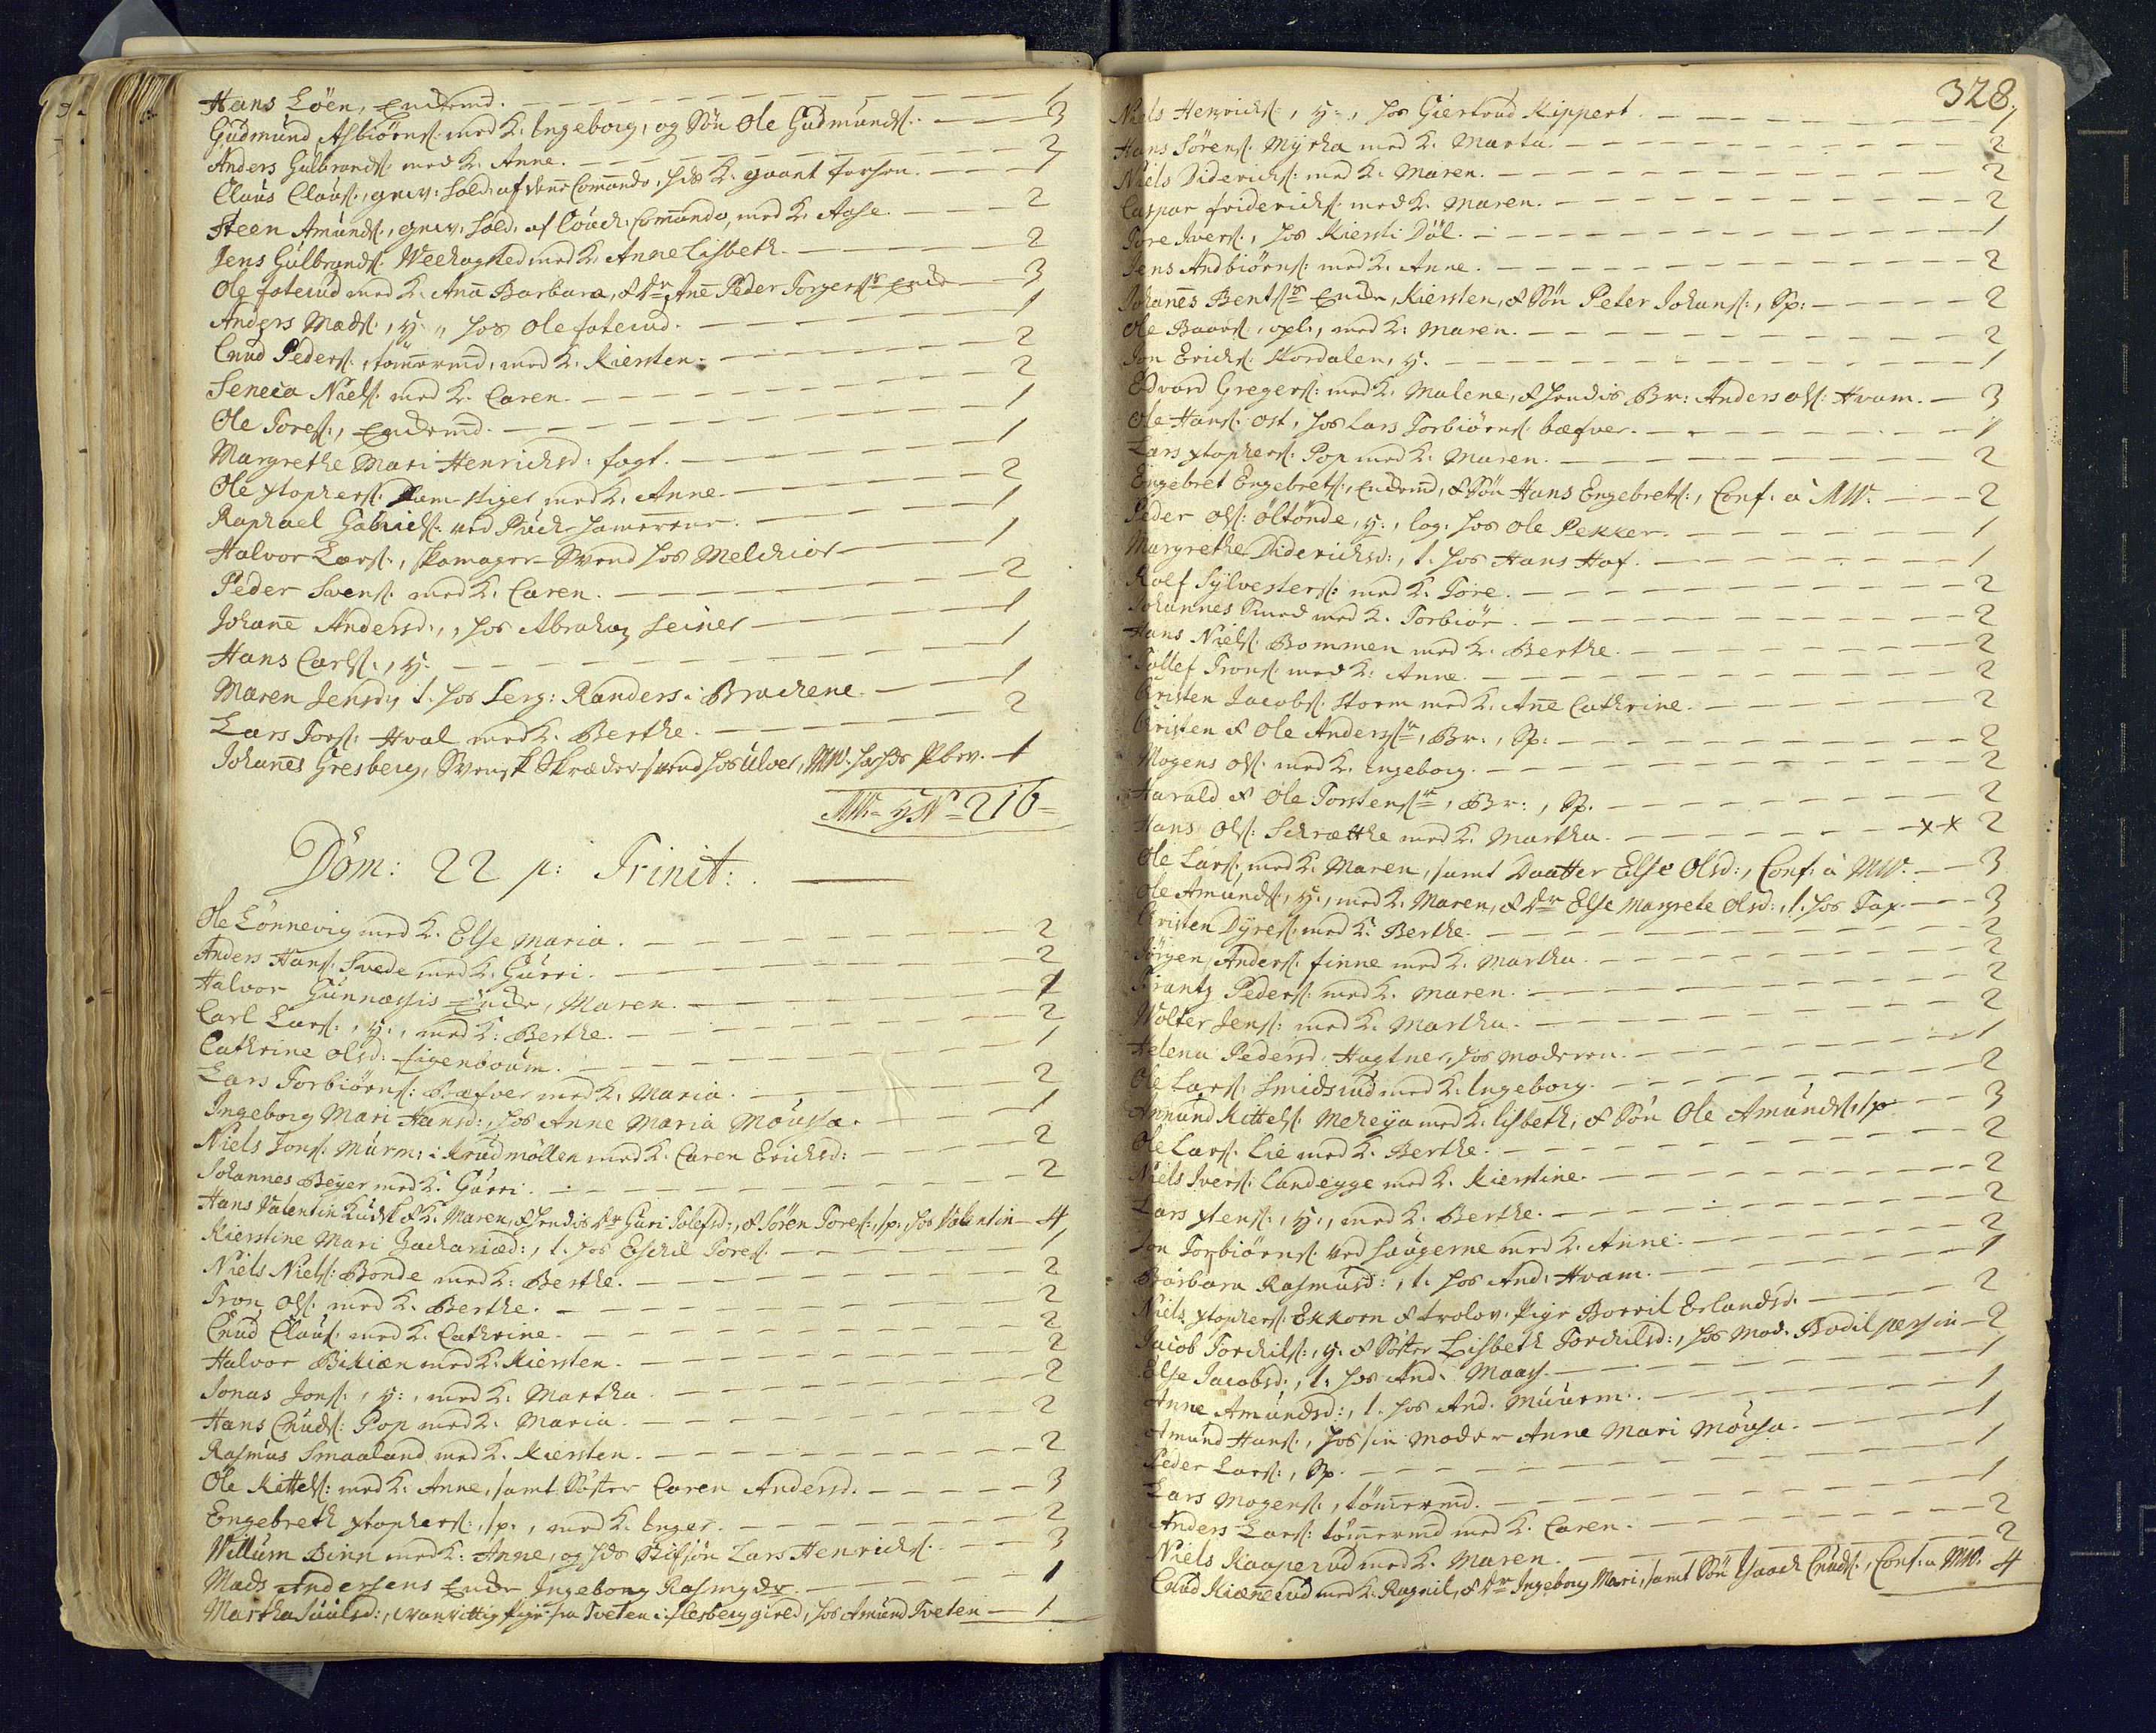 Hans Löen, Enckemd. 1
Gudmund Asbiörns: med K. Ingeborg, og Sön Ole Gudmunds: 3
Anders Gulbrands: med K. Anne. 2
Claus Claus:, gev: Sold: af Comando, K. 1
Steen Amunds:, gev: Sold: af Couch: Comando, med K. Aase. 2
Jens Gulbrands: Weehagsted med K. Anne Lisbeth. 2
Ole foterud med K. Ana Barbara, & Dr Ane Peder Torgerss: Enke 3
Anders Mads:, y., hos Ole foterud. 1
Cnud Peders:, tömermd, med K. Kiersten. 2
Seneca Niels: med K. Caren. 2
Ole Tores:, Enckemd. 1
Margrethe Mari Henrichsd: fogt. 1
Ole xtophers: Ram-stiger med K. Anne. 2
Raphael Gabriels: ved Puch-hamerene. 1
Halvor Lars:, skomager-Svend hos Melchior 1
Peder Svens: med K. Caren. 2
Johane Andersd:, hos Abraham Seiner 1
Hans Carls:, y. 1
Maren Jensd, t. hos Serg: Randers i Brachene. 1
Lars Tors: Hval med K. Berthe. 2
Johanes Gresberg, Svensk Skrædersvend hos Ulver, MW. 1
216
Dom: 22 p: Trinit:
Ole Lonnevig med K. Else Maria. 2
Anders Hans: Svede med K. Gurri. 2
Halvor Gunnæssis Encke, Maren. 1
Carl Lars:, y., med K. Berthe. 2
Cathrine Olsd: Figenboum. 1
Lars Torbiörns: Bæfver med K. Maria. 2
Ingeborg Mari Hansd:, hos Anne Maria Moussa. 1
Niels Jons: Murm: i Krudmöllen med K. Caren Erichsd: 2
Johannes Beyer med K. Gurri. 2
Hans Valentin Kudsk & K. Maren, & hendis Dr Guri Tolefsd:, & Sören Tores:, sp. hos Valentin 4
Kierstine Mari Zachariæd:, t. hos Eschil Tores: 1
Niels Niels: Bonde med K: Berthe. 2
Tron Ols: med K. Berthe. 2
Cnud Claus: med K. Cathrine. 2
Halvor Bikiæn med K. Kiersten. 2
Jonas Jons:, y:, med K. Martha. 2
Hans Cnuds: Pop med K. Maria. 2
Rasmus Smaaland med K. Kiersten. 2
Ole Kittels: med K. Anne, samt Söster Caren Andersd. 3
Engebreth xtophers:, sp:, med K. Inger. 2
Willum Binn med K. Anne, og hds Stifsön Lars Henrichs: 3
Mads Andersens Encke Ingeborg Rasmusdr. 1
Martha Juulsd:, vanvittig Pige fra Tveten i Flesberg gield, hos Amund Tveten 1
328.
Niels Henrichs:, y., hos Giertrud Kippert. 1
Hans Sörens: Myrha med K. Marta. 2
Niels Diderichs: med K. Maren. 2
Caspar friderichs: med K. Maren. 2
Tore Ivers:, hos Kiersti Döl. 1
Jens Andbiörns: med K. Anne. 2
Johanes Bentss: Encke, Kiersten, & Sön Peter Johans:, Sp: 2
Ole Baars:, opl:, med K: Maren. 2
Jon Erichs: Nordalen, y. 1
Edvard Gregers: med K. Malene, & hendis Br: Anders Ols: Hvam. 3
Ole Hans: Ost, hos Lars Torbiörns: bæfver. 1
Lars xtophers: Pop med K. Maren. 2
Engebret Engebrets:, Enckemd, & Sön Hans Engebrets:, Conf: a MW. 2
Peder Ols: Öltönde, y., log: hos Ole Pekker. 1
Margrethe Diderichsd:, t. hos Hans Hof. 1
Rolf Sylvesters: med K. Tore. 2
Johannes Smed med K. Torbiör. 2
Hans Niels: Bommen med K. Berthe. 2
Tollef Trons: med K. Anne. 2
Christen Jacobs: Storm med K. Ane Cathrine. 2
Christen & Ole Anderss:, Br:, Sp: 2
Mogens Ols: med K. Ingeborg. 2
Harald & Ole Torstenss:, Br:, Sp. 2
Hans Ols: Schrætthe med K. Martha. xx 2
Ole Lars: med K. Maren, samt Daatter Else Olsd:, Conf: a MW. 3
Ole Amunds:, y:, med K. Maren, & Dr Else Margrete Olsd:, t. hos Fax. 3
Christen Dyres: med K. Berthe. 2
Jörgen Anders: finne med K. Martha. 2
Frantz Peders: med K. Maren. 2
Wolter Jens: med K. Martha. 2
Helena Pedersd: Hagtner, hos moderen. 1
Ole Lars: Smidsrud med K. Ingeborg. 2
Amund Kittels: Meheya med K. Lisbeth, & Sön Ole Amunds:, sp 3
Ole Lars: Lie med K. Berthe. 2
Niels Ivers: Landeyge med K. Kierstine. 2
Lars xtens:, y:, med K. Berthe. 2
Jon Torbiörns: ved Saugerne med K. Anne. 2
Barbara Rasmusd:, t. hos And: Hvam. 1
Niels xtophers: Ekkorn & trolov: Pige Borril Erlandsd. 2
Jacob Torchils:, y. & Söster Lisbeth Torchilsd:, hos Mod: Bodil 2
Else Jacobsd:, t. hos And: Maas. 1
Anne Amundsd:, t. hos And. Muurm: 1
Amund Hans:, hos sin Moder Anne Mari Mousa. 1
Peder Lars:, Sp. 1
Lars Mogens:, tömermd. 1
Anders Lars: tömermd med K. Caren. 2
Niels Kaaperud med K. Maren. 2
Cnud Kiænerud med K. Ragnil, & Dr Ingeborg Mari, samt Sön Isaach Cnuds:, Conf: a MW. 4